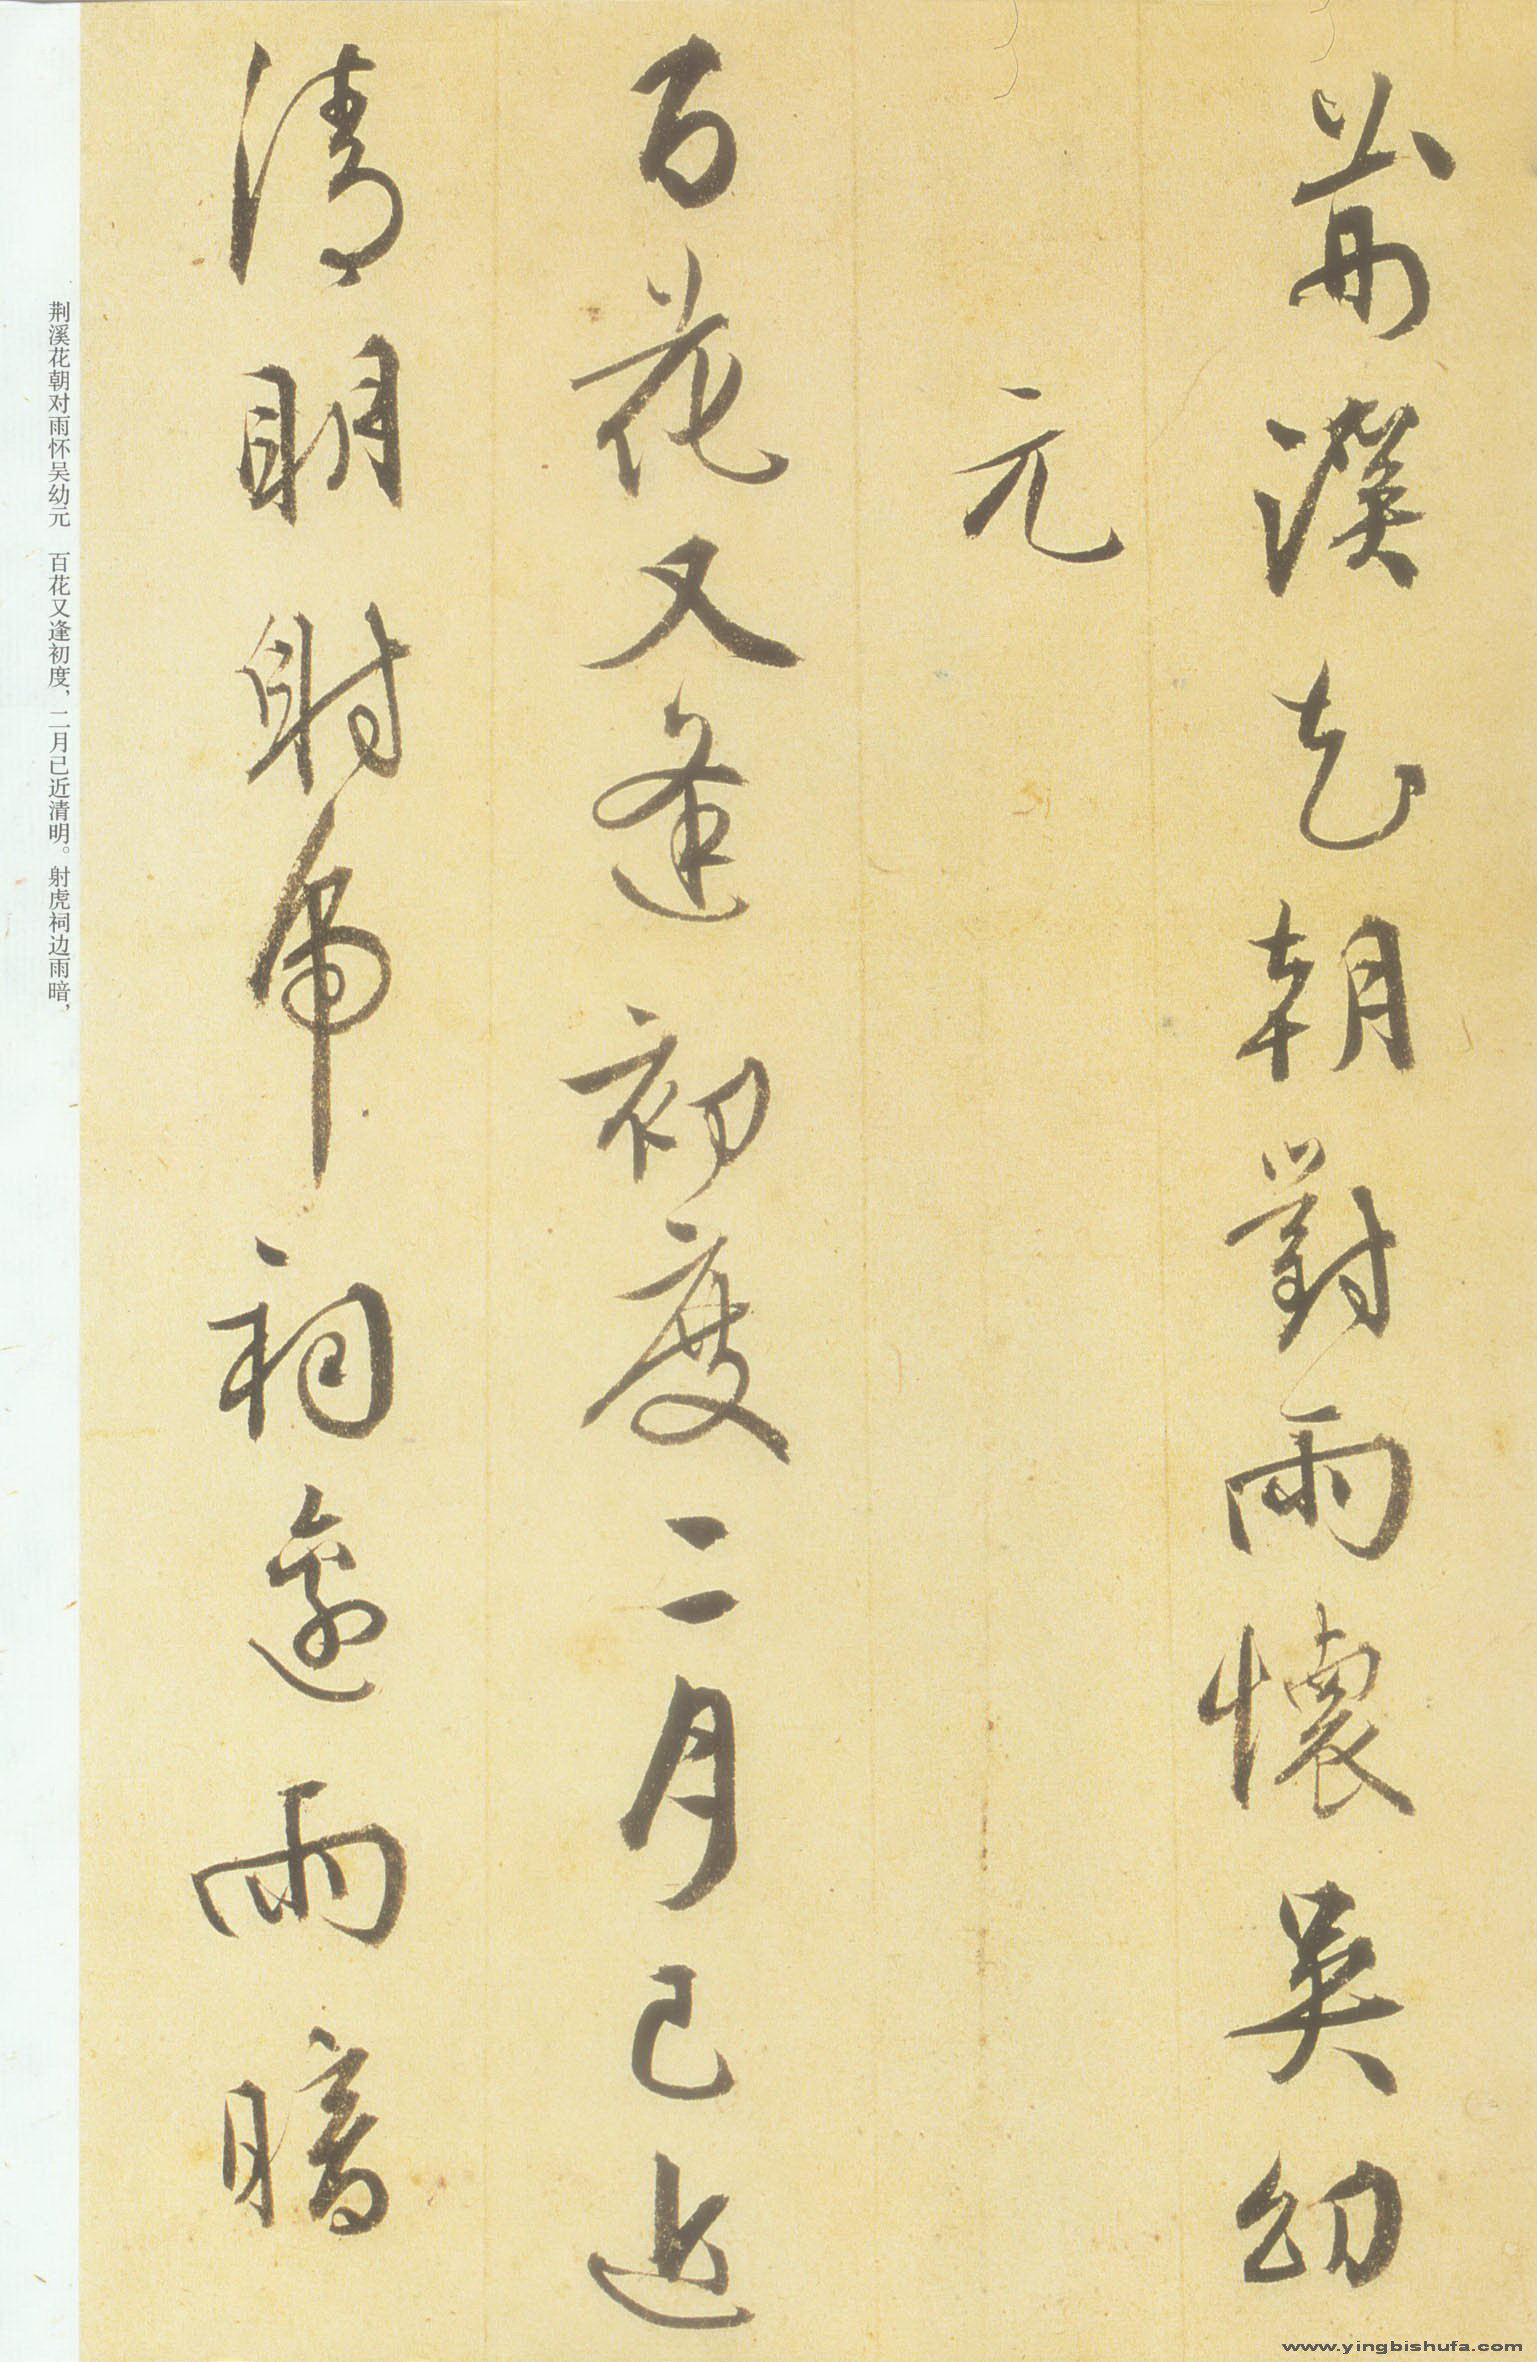 荆溪花朝對雨懷吴幼
元
百花又逢初度二月已近
清明射虎祠邊雨暗
荆溪花朝对雨怀吴幼元　百花又逢初度，二月已近清明。射虎祠边雨暗，
www.yingbishufa.com